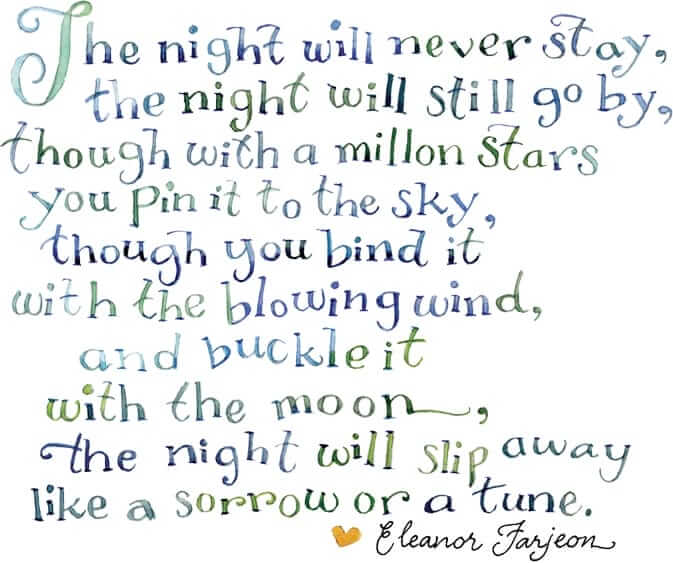 The night will never stay,
the night will still go by,
though with a millon stars
you pin it to the sky,
though you bind it
with the blowing wind,
and buckle it
with the moon,
the night will slip away
like a sorrow or a tune.
Eleanor Farjeon